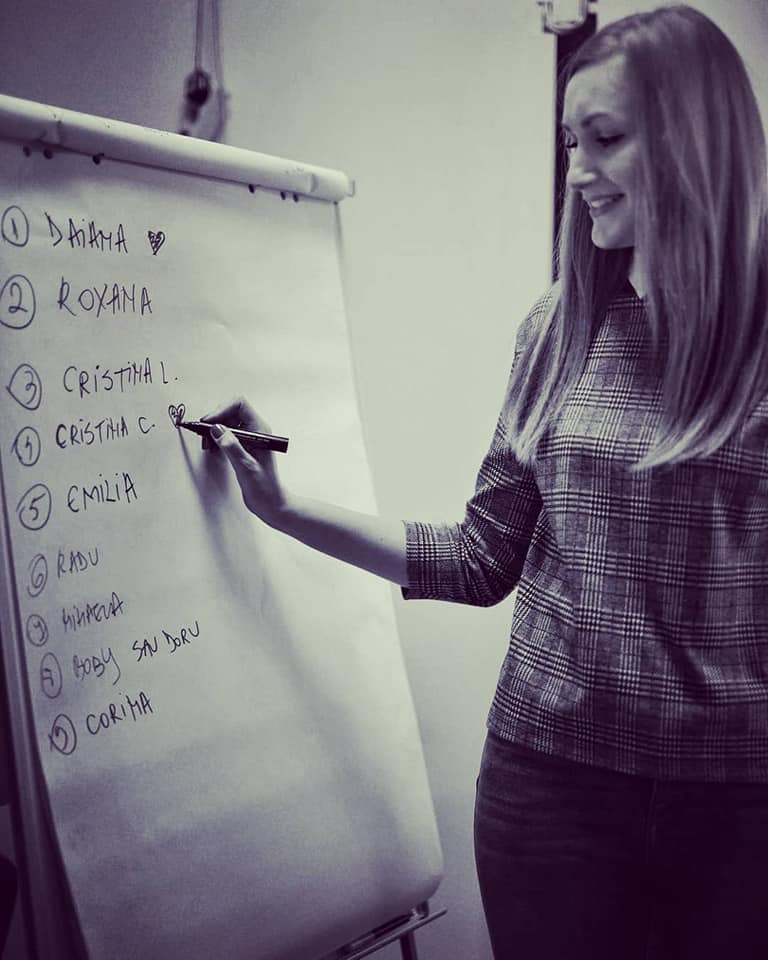 1 DAIANA
2 ROXANA
3 CRISTINA L.
4 CRISTINA C.
5 EMILIA
6 RADU
7 MIHAELA
8 BOBY SAU DORU
9 CORINA